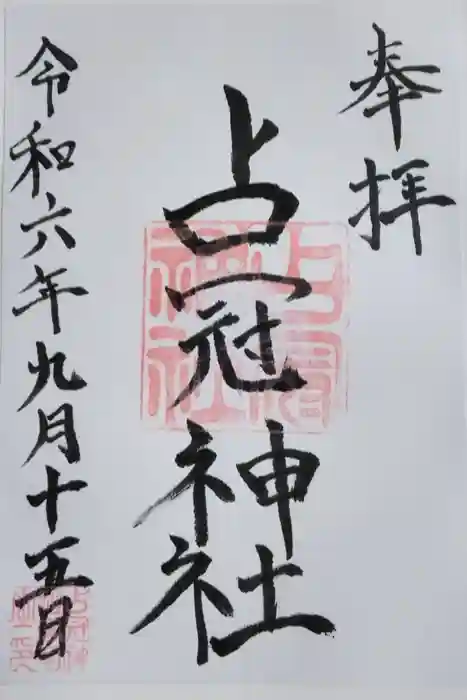 奉拝
占冠神社
令和六年九月十五日